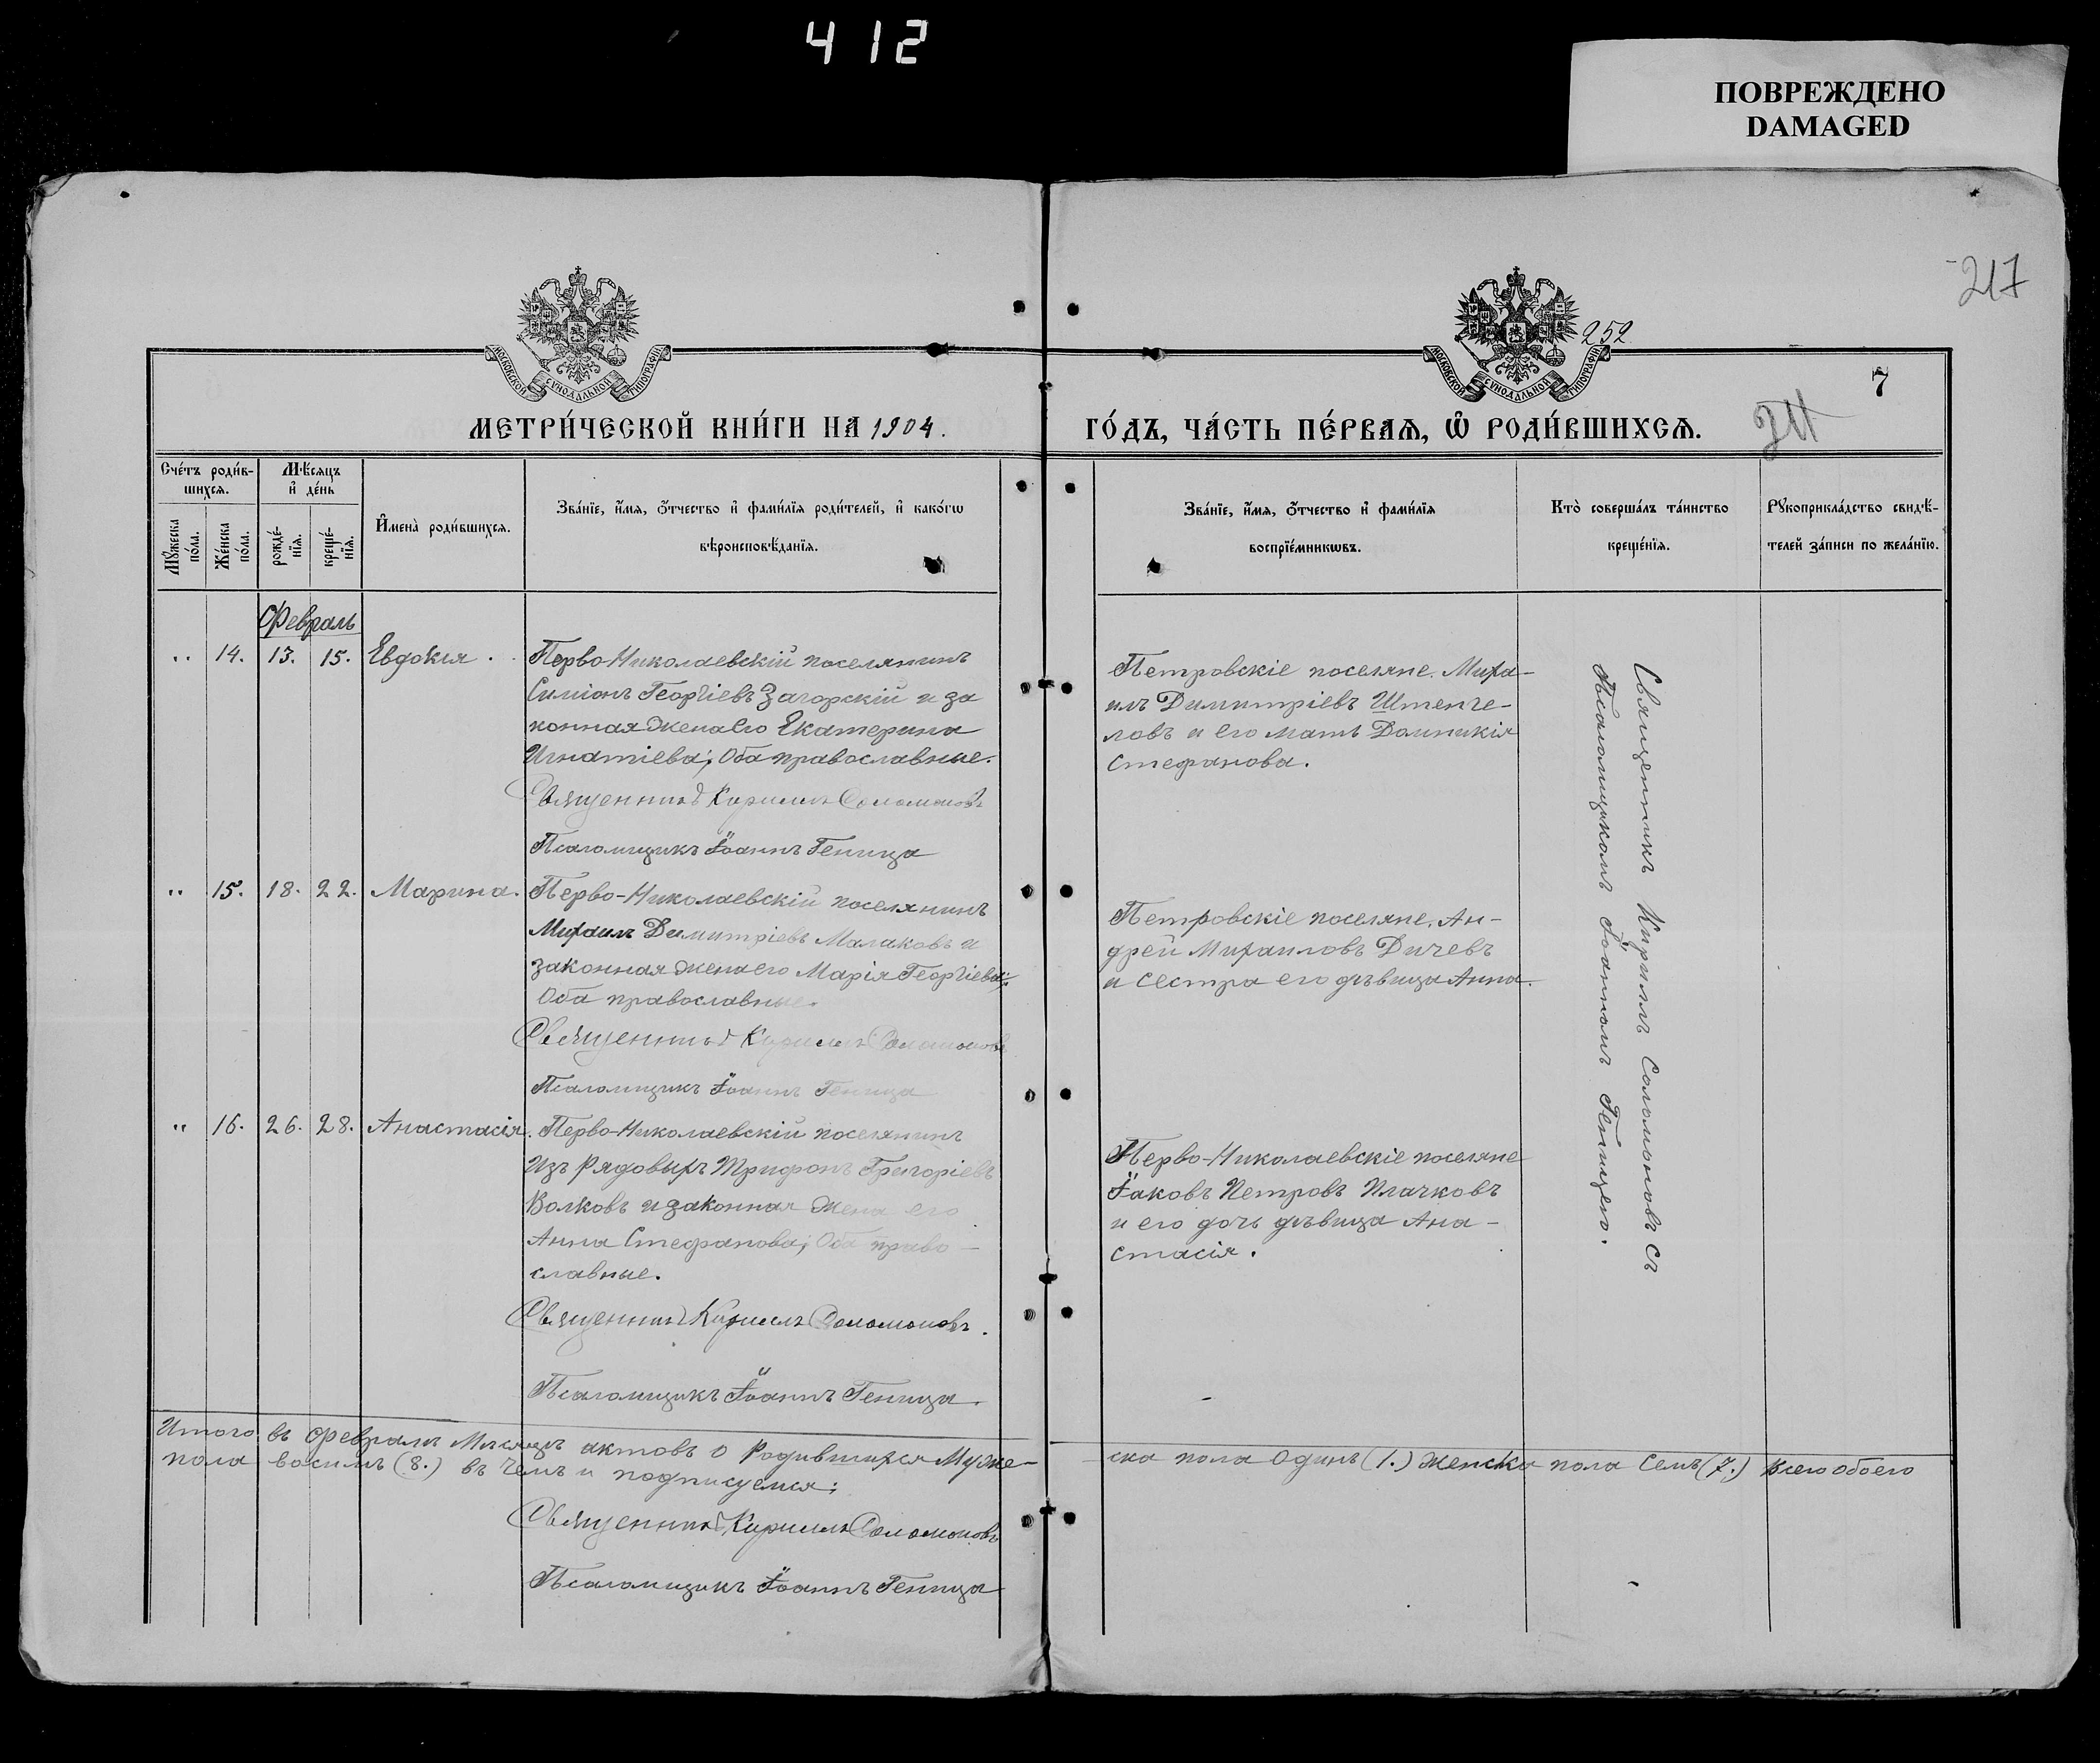 412
ПОВРЕЖДЕНО
DAMAGED
217
252
7
МОСКОВСКОЙ СѴНОДАЛЬНОЙ ТИПОГРАФІИ
МОСКОВСКОЙ СѴНОДАЛЬНОЙ ТИПОГРАФІИ
МЕТРИ́ЧЕСКОЙ КНИ́ГИ НА 1904.
ГО́ДЪ, ЧА́СТЬ ПЕ́РВАѦ, Ѡ҆ РОДИ́ВШИХСѦ.
Сче́тъ роди́в-
шихсѧ.
Мꙋ́жеска по́ла.
Же́нска по́ла.
Мѣ́сѧцъ
и҆ де́нь
рожде́-
нїѧ.
креще́-
нїѧ.
И҆мена̀ роди́вшихсѧ.
Зва́нїе, и҆́мѧ, о҆́тчество и҆ фами́лїѧ роди́телей, и҆ како́гѡ
вѣроисповѣ́данїѧ.
Зва́нїе, и҆́мѧ, о҆́тчество и҆ фами́лїѧ
воспрїе́мникѡвъ.
Кто̀ соверша́лъ та́инство
креще́нїѧ.
Рꙋкоприкла́дство свидѣ́-
телей за́писи по жела́нїю.
Февраль
" 14. 13. 15. Евдокія.
Перво-Николаевскій поселянинъ
Симіонъ Георгіевъ Загорскій и за
конная жена его Екатерина
Игнатіева; Оба православные.
Священникъ Кириллъ Соломоновъ
Псаломщикъ Іоаннъ Геница
Петровскіе поселяне. Миха-
илъ Димитріевъ Штенге-
ловъ и его мать Домникія
Стефанова.
" 15. 18. 22. Марина.
Перво-Николаевскій поселянинъ
Михаилъ Димитріевъ Малаковъ и
законная жена его Марія Георгіева;
Оба православные.
Священникъ Кириллъ Соломоновъ
Псаломщикъ Іоаннъ Геница
Петровскіе поселяне. Ан-
дрей Михаиловъ Дичевъ
и сестра его дѣвица Анна.
" 16. 26. 28. Анастасія.
Перво-Николаевскій поселянинъ
Изъ Рядовыхъ Трифонъ Григоріевъ
Волковъ и законная жена его
Анна Стефанова; Оба право-
славные.
Священникъ Кириллъ Соломоновъ.
Псаломщикъ Іоаннъ Геница.
Перво-Николаевскіе поселяне
Іаковъ Петровъ Плачковъ
и его дочь дѣвица Ана-
стасія.
Священникъ Кириллъ Соломоновъ съ
Псаломщикомъ Іоанномъ Геницею.
Итого въ Февралѣ Мѣсяцѣ актовъ о Родившихся Муже-
ска пола Одинъ (1.) Женска пола Семь (7.) Всего обоего
пола восимъ (8.) въ чемъ и подписуемся:
Священникъ Кириллъ Соломоновъ
Псаломщикъ Іоаннъ Геница